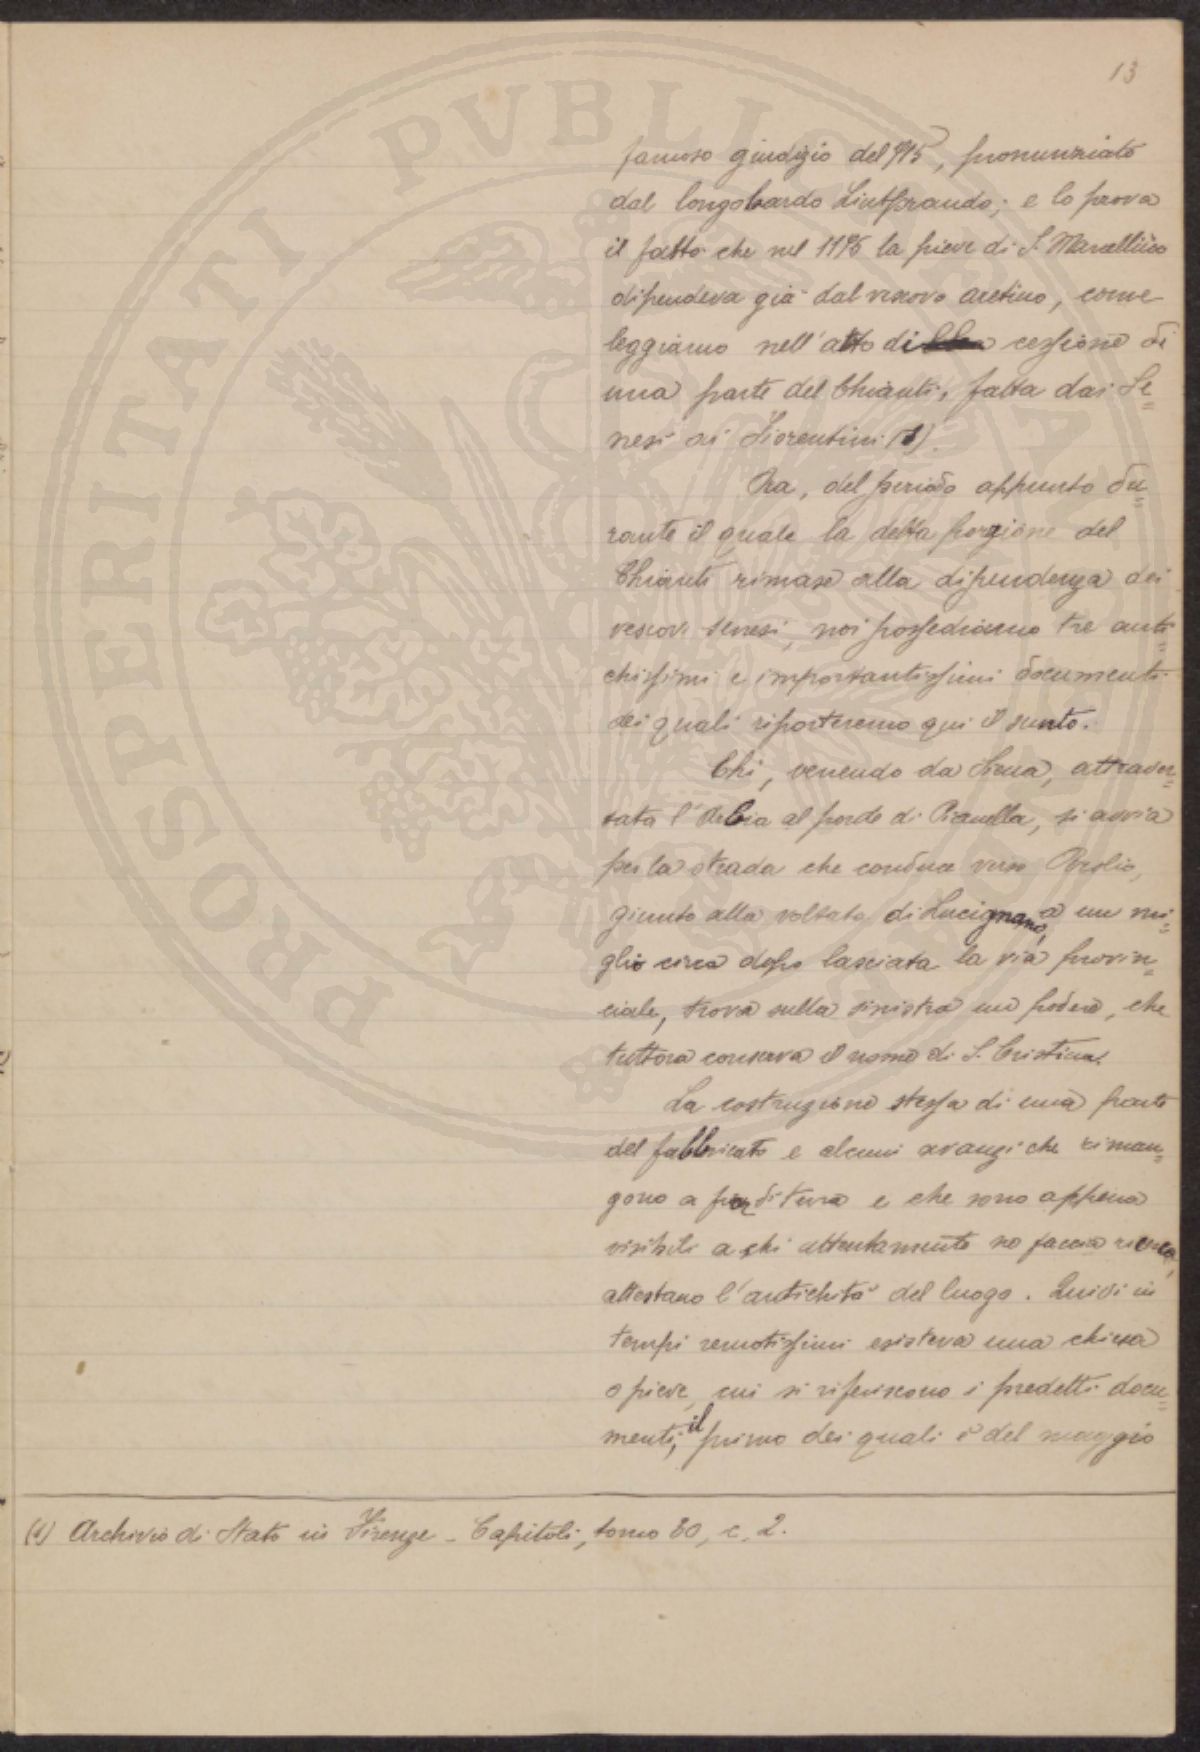 13
famoso giudizio del 715, pronunziato
dal longobardo Liutprando; e lo prova
il fatto che nel 1176 la pieve di S. Marcellino
dipendeva già dal vescovo aretino, come
leggiamo nell'atto di cessione di
una parte del Chianti, fatta dai Se=
nesi ai Fiorentini (1).
Ora, del periodo appunto du=
rante il quale la detta porzione del
Chianti rimase alla dipendenza dei
vescovi senesi, noi possediamo tre anti=
chissimi e importantissimi documenti
dei quali riporteremo qui il sunto.
Chi, venendo da Siena, attraver=
sata l'Arbia al ponte di Pianella, si avvia
per la strada che conduce verso Brolio,
giunto alla voltata di Lucignano, a un mi=
glio circa dopo lasciata la via provin=
ciale, trova sulla sinistra un podere, che
tuttora conserva il nome di S. Cristina.
La costruzione stessa di una parte
del fabbricato e alcuni avanzi che riman=
gono a fior di terra e che sono appena
visibili a chi attentamente ne faccia ricerca,
attestano l'antichità del luogo. Quivi in
tempi remotissimi esisteva una chiesa
o pieve, cui si riferiscono i predetti docu=
menti, il primo dei quali è del maggio
(1) Archivio di Stato in Firenze - Capitoli, tomo 20, c. 2.
PROSPERITATI PVBLICAE